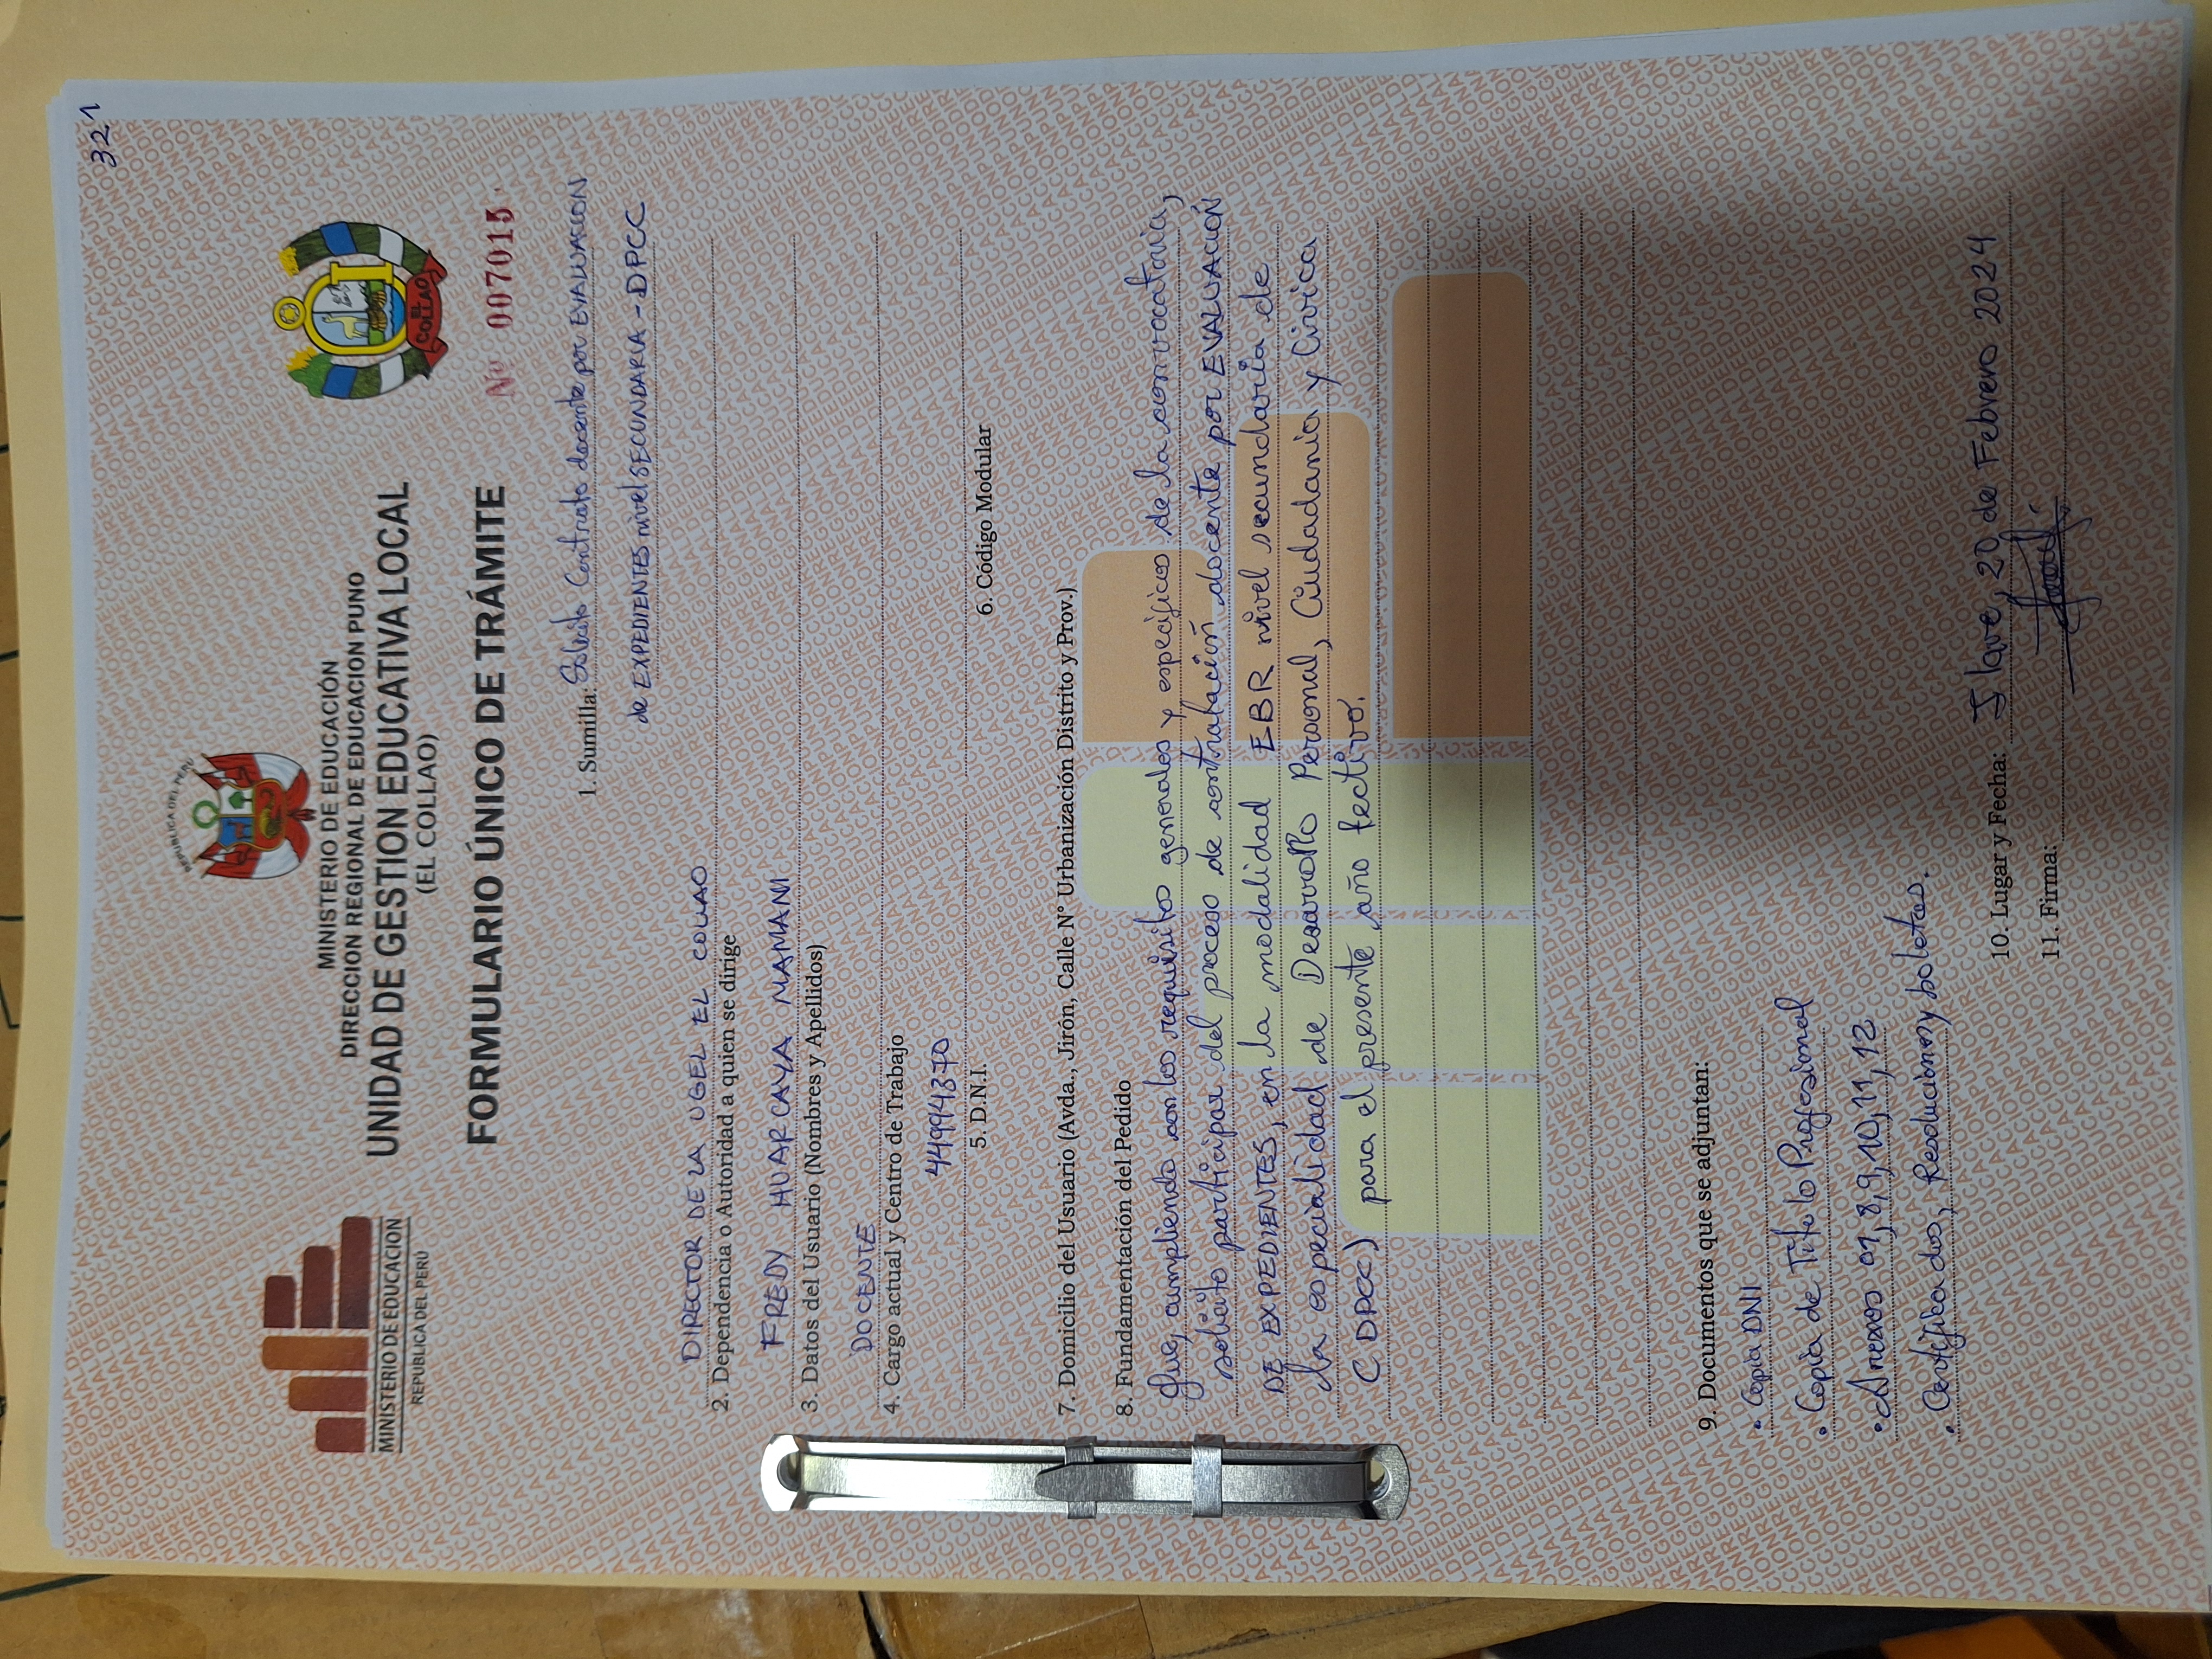 321
REPUBLICA DEL PERU
MINISTERIO DE EDUCACION
REPUBLICA DEL PERÚ
MINISTERIO DE EDUCACIÓN
DIRECCION REGIONAL DE EDUCACION PUNO
UNIDAD DE GESTION EDUCATIVA LOCAL
(EL COLLAO)
EL COLLAO
FORMULARIO ÚNICO DE TRÁMITE
Nº 007015
1. Sumilla: Solicito Contrato docente por EVALUACION
de EXPEDIENTES nivel SECUNDARIA - DPCC
DIRECTOR DE LA UGEL EL COLLAO
2. Dependencia o Autoridad a quien se dirige
FREDY HUARCAYA MAMANI
3. Datos del Usuario (Nombres y Apellidos)
DOCENTE
4. Cargo actual y Centro de Trabajo
44994370
5. D.N.I. 6. Código Modular
7. Domicilio del Usuario (Avda., Jirón, Calle N° Urbanización Distrito y Prov.)
8. Fundamentación del Pedido
Que, cumpliendo con los requisitos generales y específicos de la convocatoria,
solicito participar del proceso de contratación docente por EVALUACIÓN
DE EXPEDIENTES, en la modalidad EBR nivel secundaria de
la especialidad de Desarrollo Personal, Ciudadanía y Cívica
(DPCC) para el presente año lectivo.
9. Documentos que se adjuntan:
• Copia DNI
• Copia de Título Profesional
• Anexos 01, 8, 9, 10, 11, 12
• Certificados, Resoluciones y boletas.
10. Lugar y Fecha: Ilave, 20 de Febrero 2024
11. Firma: